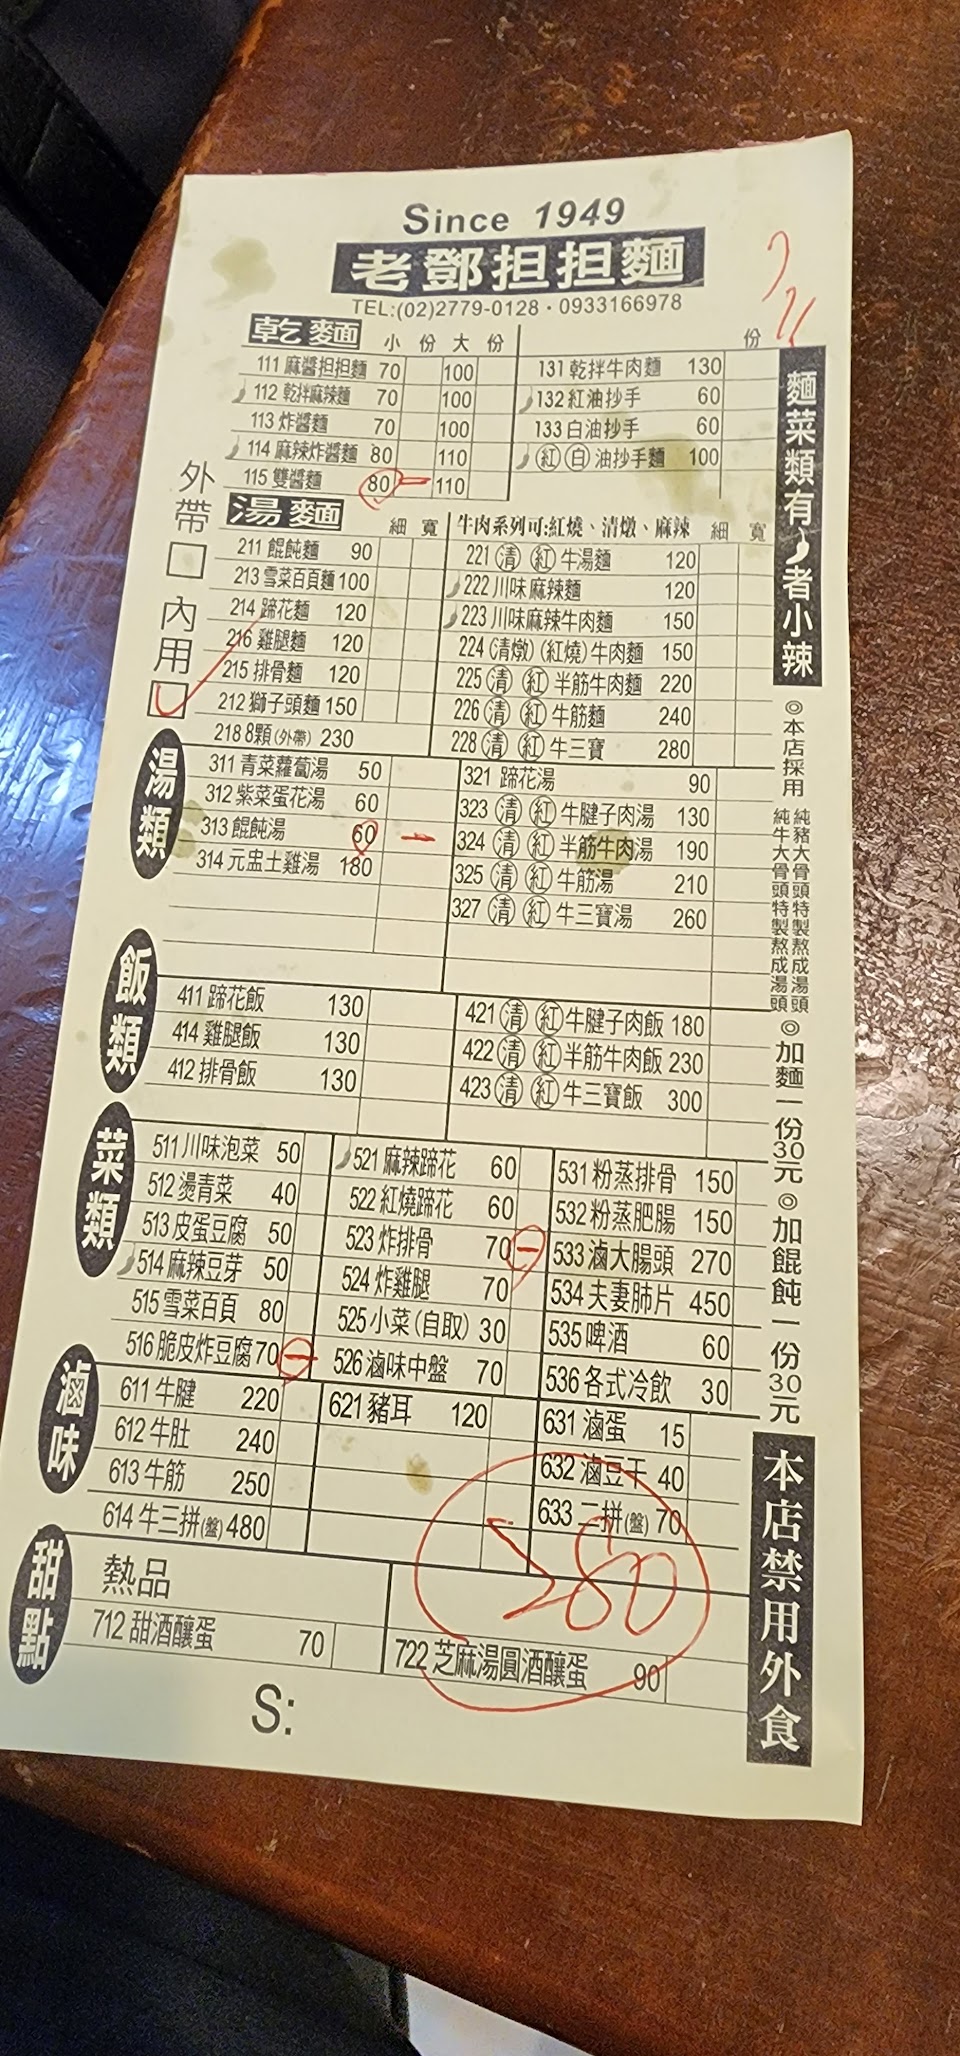 Since 1949
老鄧担担麵
TEL:(02)2779-0128・0933166978
乾麵 小份 大份
111 麻醬担担麵 70 100
112 乾拌麻辣麵 70 100
113 炸醬麵 70 100
114 麻辣炸醬麵 80 110
115 雙醬麵 80 一 110
份
131 乾拌牛肉麵 130
132 紅油抄手 60
133 白油抄手 60
紅 白 油抄手麵 100
外帶□
內用□
湯麵 細 寬
211 餛飩麵 90
213 雪菜百頁麵 100
214 蹄花麵 120
216 雞腿麵 120
215 排骨麵 120
212 獅子頭麵 150
218 8顆(外帶) 230
牛肉系列可:紅燒、清燉、麻辣 細 寬
221 清 紅 牛湯麵 120
222 川味麻辣麵 120
223 川味麻辣牛肉麵 150
224 (清燉)(紅燒)牛肉麵 150
225 清 紅 半筋牛肉麵 220
226 清 紅 牛筋麵 240
228 清 紅 牛三寶 280
湯類
311 青菜蘿蔔湯 50
312 紫菜蛋花湯 60
313 餛飩湯 60 一
314 元盅土雞湯 180
321 蹄花湯 90
323 清 紅 牛腱子肉湯 130
324 清 紅 半筋牛肉湯 190
325 清 紅 牛筋湯 210
327 清 紅 牛三寶湯 260
飯類
411 蹄花飯 130
414 雞腿飯 130
412 排骨飯 130
421 清 紅 牛腱子肉飯 180
422 清 紅 半筋牛肉飯 230
423 清 紅 牛三寶飯 300
菜類
511 川味泡菜 50
512 燙青菜 40
513 皮蛋豆腐 50
514 麻辣豆芽 50
515 雪菜百頁 80
516 脆皮炸豆腐 70 一
521 麻辣蹄花 60
522 紅燒蹄花 60
523 炸排骨 70 一
524 炸雞腿 70
525 小菜(自取) 30
526 滷味中盤 70
531 粉蒸排骨 150
532 粉蒸肥腸 150
533 滷大腸頭 270
534 夫妻肺片 450
535 啤酒 60
536 各式冷飲 30
滷味
611 牛腱 220
612 牛肚 240
613 牛筋 250
614 牛三拼(盤) 480
621 豬耳 120
631 滷蛋 15
632 滷豆干 40
633 二拼(盤) 70
280
甜點
熱品
712 甜酒釀蛋 70
722 芝麻湯圓酒釀蛋 90
S:
麵菜類有 者小辣
◎本店採用
純豬大骨頭特製熬成湯頭
純牛大骨頭特製熬成湯頭
◎加麵一份30元
◎加餛飩一份30元
本店禁用外食